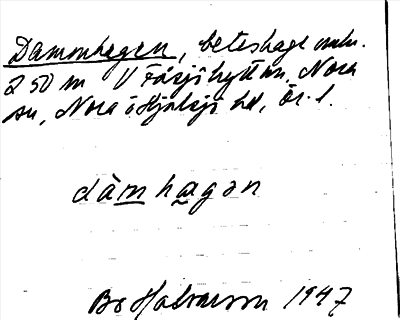 Dammhagen, beteshage omkr.
250 m V Fåsjöhyttan, Nora
sn, Nora o Hjulsjö hd, Ör. l.
dàmhagən
Bo Halvarsson 1947